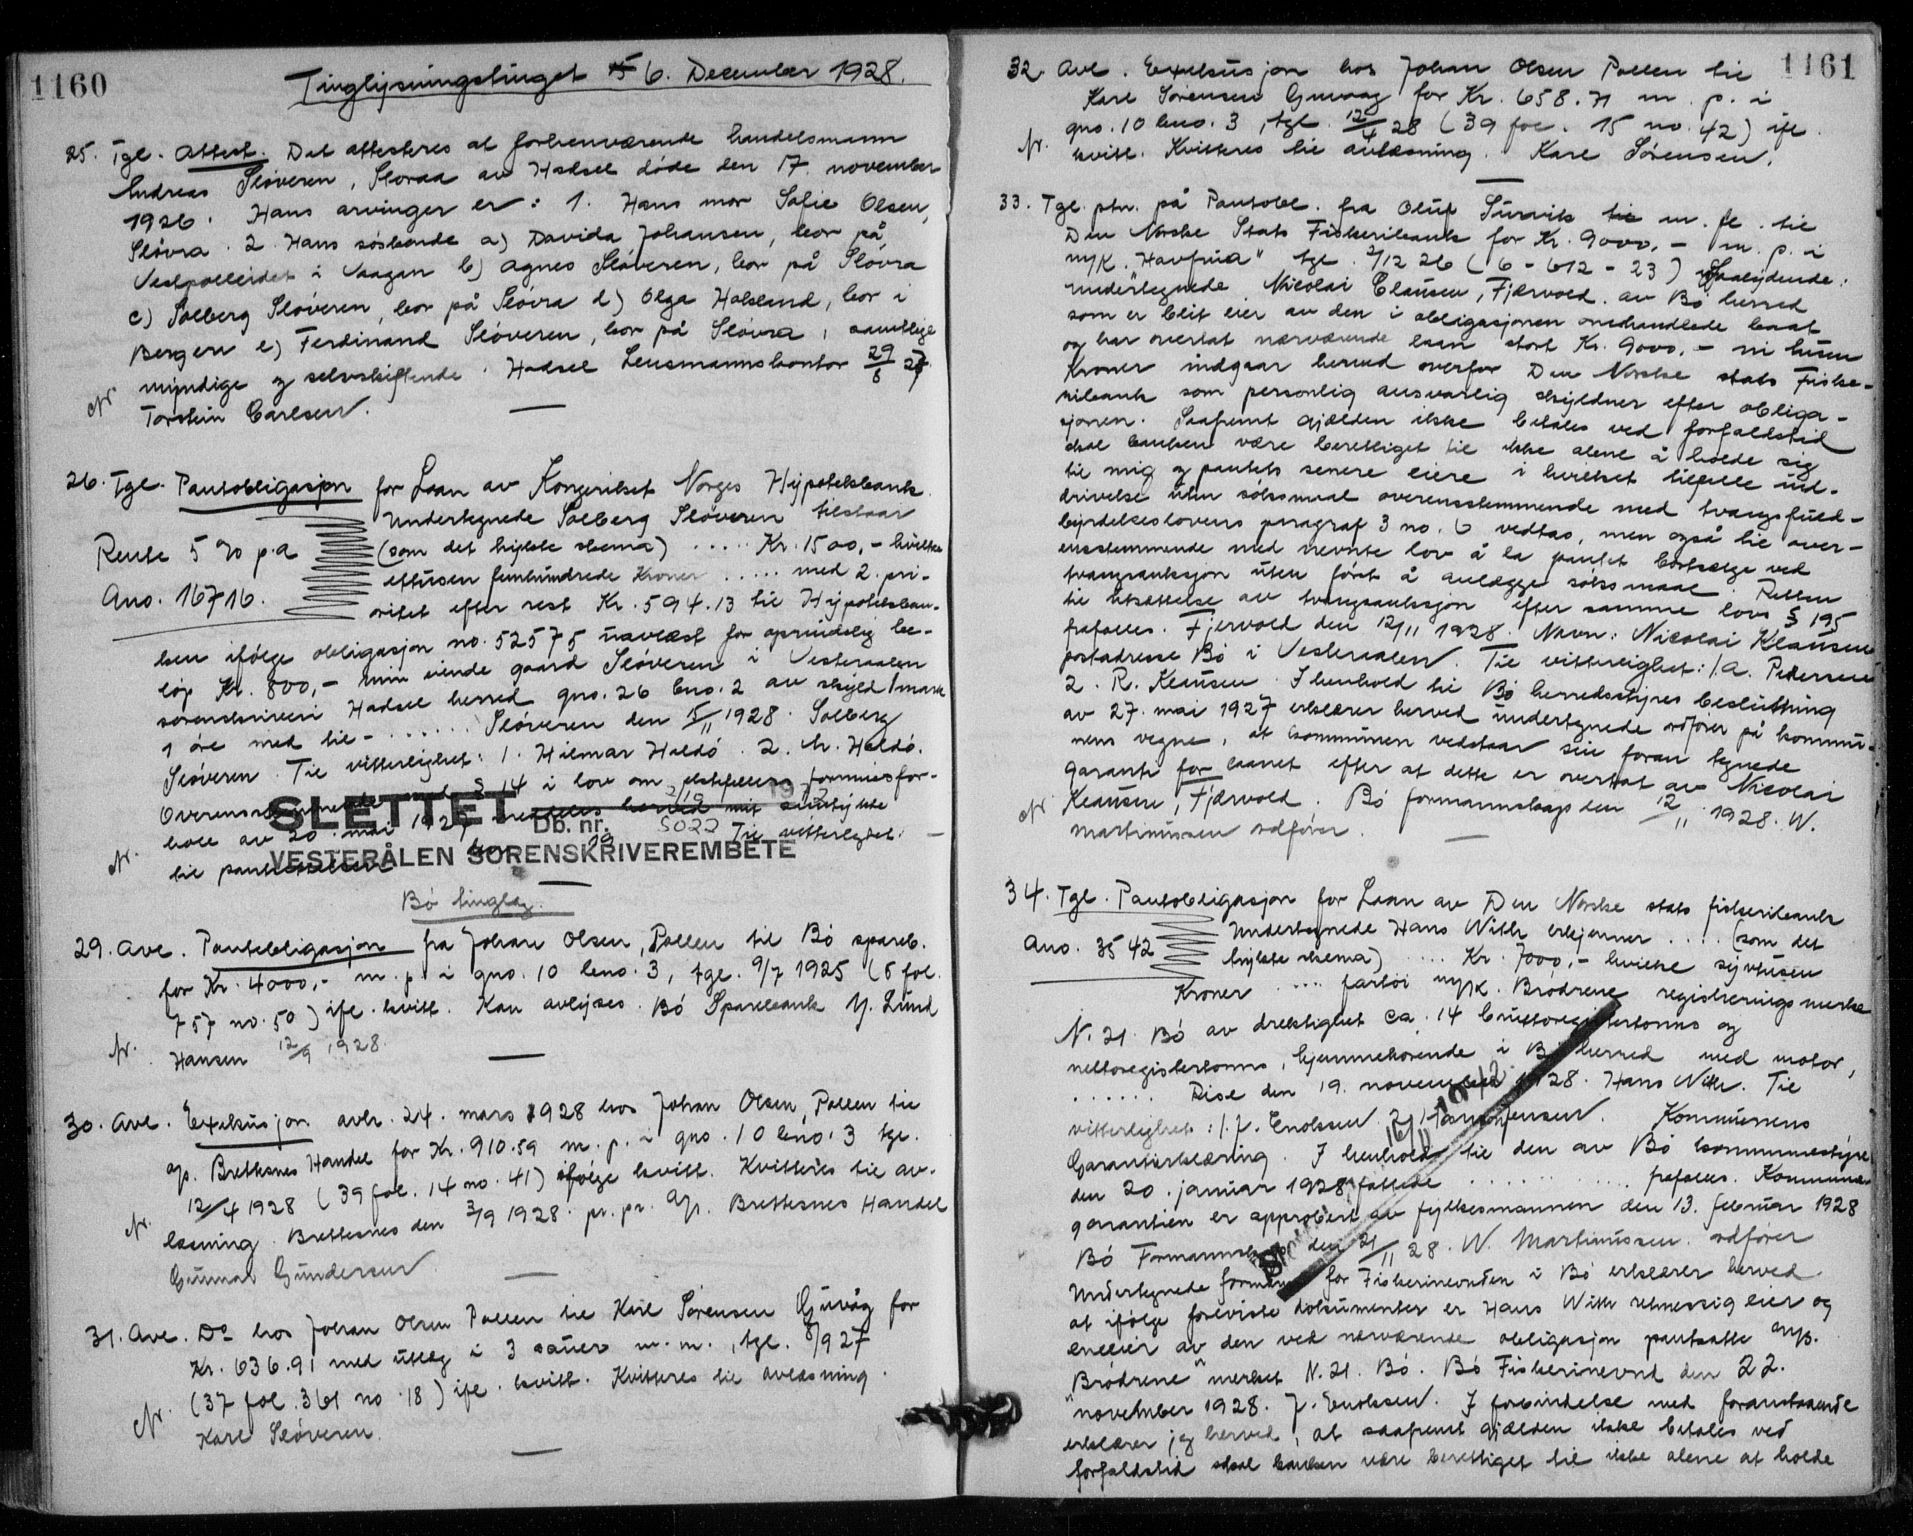 1160
Tinglysningstinget 6. December 1928.
25. Tgl. Attest. Det attesteres at forhenværende handelsmann
Andreas Sløveren, Slovraa av Hadsel døde den 17. november
1926. Hans arvinger er: 1. Hans mor Sofie Olsen,
Sløvra. 2. Hans søskende a) Davida Johansen, bor på
Vestpolleidet i Vaagan b) Agnes Sløveren, bor på Sløvra
c) Solberg Sløveren, bor på Sløvra d) Olga Halsland, bor i
Bergen e) Ferdinand Sløveren, bor på Sløvra, samtlige
myndige og selvskiftende. Hadsel Lensmannskontor 29/8 27
Nr. Torstein Carlsen.
26. Tgl. Pantobligasjon for Laan av Kongeriket Norges Hypotekbank.
Undertegnede Solberg Sløveren tilstaar
Rente 5 % p.a (som det trykte skema) ..... Kr. 1500,- hvilke
ettusen femhundrede Kroner ..... med 2. pri-
Ano. 16716. oritet efter rest Kr. 594.13 til Hypotekban-
ken ifølge obligasjon no. 52575 utavlæst for oprindelig be-
løp Kr. 800,- min eiende gaard Sløveren i Vesteraalen
sorenskriveri Hadsel herred gno. 26 bno. 2 av skyld 1 mark
1 øre med til- ...... Sløveren den 15/11 1928. Solberg
Sløveren. Til vitterlighet: 1. Hilmar Haldó. 2. M. Haldó.
Overensstemmende med § 14 i lov om ektefellers formuesfor-
hold av 20. mai 1927 meddeles herved mit samtykke
Nr. til pantsettelsen. Til vitterlighet: -
SLETTET 2/12 19
Db. nr. 5022
VESTERÅLEN SORENSKRIVEREMBETE
Bø tinglag.
29. Avl. Pantobligasjon fra Johan Olsen, Pollen til Bø spareb.
for Kr. 4000,- m. p. i gno. 10 bno. 3, tgl. 9/7 1925 (5 fol.
757 no. 50) ifl. kvitt. Kan avlyses. Bø Sparebank Y. Lund
Nr. Hansen 12/9 1928.
30. Avl. Exekusjon avh. 24. mars 1928 hos Johan Olsen, Pollen til
A/s. Brettesnes Handel for Kr. 910.59 m. p. i gno. 10 bno. 3 tgl.
12/4 1928 (39 fol. 14 no. 41) ifølge kvitt. Kvitteres til av-
Nr. læsning. Brettesnes den 3/9 1928. pr. pr. A/s. Brettesnes Handel
Gunnar Gundersen.
31. Avl. Do hos Johan Olsen Pollen til Karl Sørensen Guvåg for
Kr. 636.91 med utlæg i 3 sauer m. m., tgl. 8/9 27
(37 fol. 361 no. 18) ifl. kvitt. Kvitteres til avlæsning.
Nr. Karl Sløveren.
1161
32. Avl. Exekusjon hos Johan Olsen Pollen til
Karl Sørensen Guvaag for Kr. 658.71 m. p. i
gno. 10 bno. 3, tgl. 12/4 28 (39 fol. 15 no. 42) ifl.
Nr. kvitt. Kvitteres til avlæsning. Karl Sørensen.
33. Tgl. ptn. på Pantobl. fra Oluf Turvik m. fl. til
Den Norske Stats Fiskeribank for Kr. 9000,- m. p. i
m/k. "Havfrua" tgl. 2/12 26 (6 - 612 - 23) saalydende:
undertegnede Nicolai Clausen, Fjærvold av Bø herred
som er blit eier av den i obligasjonen omhandlede baat
og har overtat nærværende laan stort Kr. 9000,- ni tusen
Kroner indgaar herved overfor Den Norske stats Fiske-
ribank som personlig ansvarlig skyldner efter obliga-
sjonen. Saafremt gjælden ikke betales ved forfaldstid
skal banken være berettiget til ikke alene å holde sig
til mig og pantets senere eiere i hvilket tilfælle ind-
drivelse uten søksmaal overensstemmende med tvangsfuld-
byrdelseslovens paragraf 3 no. 6 vedtas, men også til over-
ensstemmende med nevnte lov å la pantet bortsælge ved
tvangsauksjon uten først å anlægge søksmaal. Retten
til utsættelse av tvangsauksjon efter samme lovs § 195
frafalles. Fjervold den 12/11 1928. Navn: Nicolai Klausen
postadresse Bø i Vesteraalen. Til vitterlighet: 1. A. Pedersen
2. R. Klausen. I henhold til Bø herredsstyres beslutning
av 27. mai 1927 erklærer herved undertegnede ordfører på kommu-
nens vegne, at kommunen vedstaar sin foran tegnede
garanti for laanet efter at dette er overtat av Nicolai
Nr. Klausen, Fjærvold. Bø formannskap den 12/11 1928. W.
Martinussen ordfører.
34. Tgl. Pantobligasjon for Laan av Den Norske stats fiskeribank
Undertegnede Hans Withr erkjenner .... (som det
Ano. 3542 trykte skema) .... Kr. 7000,- hvilke syvtusen
Kroner .... fartøi m/k. Brødrene registreringsmerke
N. 21. Bø av drektighet ca. 14 bruttoregistertonns og
nettoregistertonns, hjemmehørende i Bø herred med motor,
...... Rise den 19. november 1928. Hans Withr. Til
vitterlighet: 1. J. Enoksen 2. Jensen. Kommunens
Garantierklæring. I henhold til den av Bø kommunestyre
den 20. januar 1928 fattede ............ frafalles. Kommune-
garantien er approbert av fylkesmannen den 13. februar 1928
Bø Formannskap den 21/11 28. W. Martinussen ordfører
Undertegnede formann for Fiskerinevnden i Bø erklærer herved
at ifølge foreviste dokumenter er Hans Withr retmessig eier og
eneeier av den ved nærværende obligasjon pantsatte m/k.
"Brødrene" merket N. 21. Bø. Bø Fiskerinevnd den 22.
november 1928. J. Enoksen. I forbindelse med foranstaaende
erklærer jeg herved, at saafremt gjælden ikke betales ved
forfaldstid skal banken være berettiget til ikke alene at holde